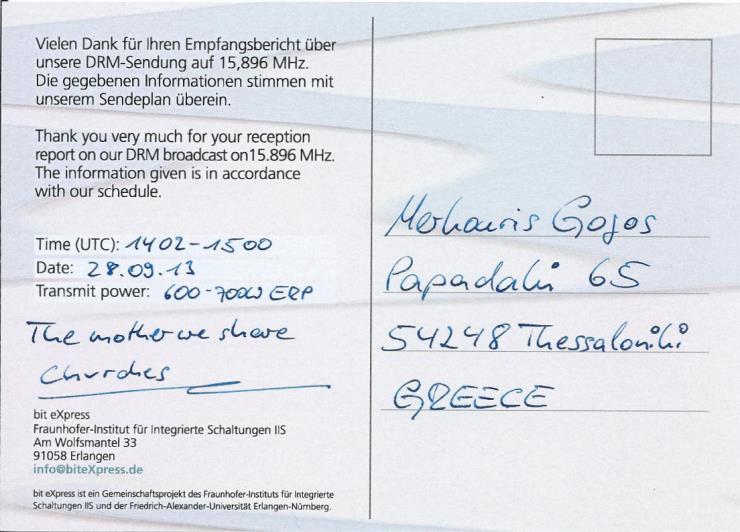 Vielen Dank für Ihren Empfangsbericht über
unsere DRM-Sendung auf 15,896 MHz.
Die gegebenen Informationen stimmen mit
unserem Sendeplan überein.
Thank you very much for your reception
report on our DRM broadcast on15.896 MHz.
The information given is in accordance
with our schedule.
Time (UTC): 1402-1500
Date: 28.09.13
Transmit power: 600-700W ERP
The mother we share
Churches
bit eXpress
Fraunhofer-Institut für Integrierte Schaltungen IIS
Am Wolfsmantel 33
91058 Erlangen
info@biteXpress.de
bit eXpress ist ein Gemeinschaftsprojekt des Fraunhofer-Instituts für Integrierte
Schaltungen IIS und der Friedrich-Alexander-Universität Erlangen-Nürnberg.
Gogos
Papadaki 65
54248 Thessaloniki
GREECE